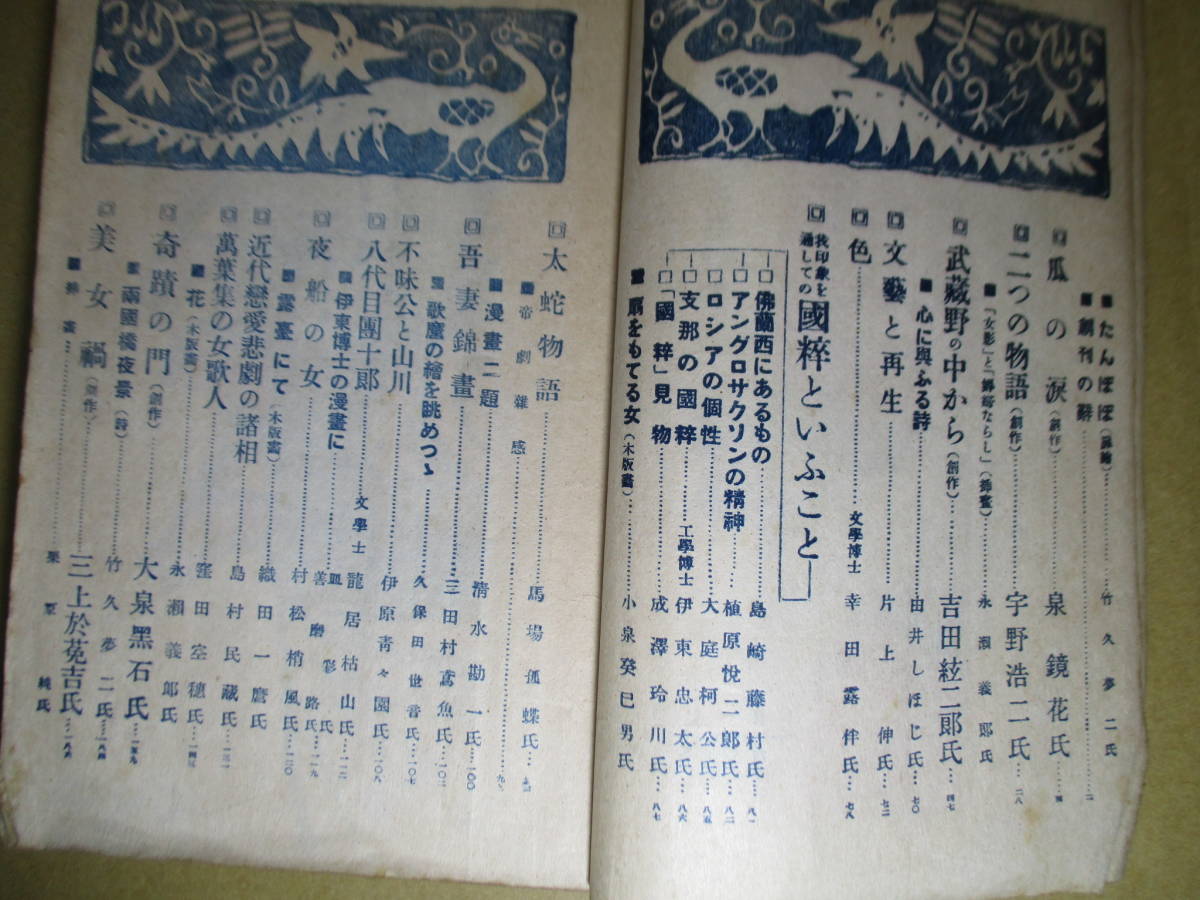 たんぽぽ 竹久夢二氏
創刊の辭
瓜の涙(創作) 泉鏡花氏
二つの物語(創作) 宇野浩二氏 二八
永瀬義郎氏
武藏野の中から(創作) 吉田絃二郎氏 四七
心に與ふる詩 由井しほじ氏 七〇
文藝と再生 片上伸氏 七二
色 文學博士 幸田露伴氏 七八
我印象を通しての 國粹といふこと
佛蘭西にあるもの 島崎藤村氏 八一
アングロサクソンの精神 植原悅二郎氏 八二
ロシアの個性 大庭柯公氏 八五
支那の國粹 工學博士 伊東忠太氏 八六
「國粹」見物 成澤玲川氏 八七
扇をもてる女(木版畵) 小泉癸巳男氏
太蛇物語 馬場孤蝶氏
帝劇雜感
漫畵二題 淸水勘一氏 一〇〇
吾妻錦畫 三田村鳶魚氏 一〇二
歌麿の繪を眺めつゝ 久保田世音氏 一〇七
不味公と山川 伊原靑々園氏 一〇六
八代目團十郞 文學士 龍居枯山氏 一一二
伊東博士の漫畫に
夜船の女 村松梢風氏 一二〇
露臺にて(木版畵)
近代戀愛悲劇の諸相 織田一麿氏
島村民藏氏
萬葉集の女歌人 窪田空穗氏
花(木版畵) 永瀬義郞氏
奇蹟の門(創作) 大泉黑石氏 一五九
兩國橋夜景(詩) 竹久夢二氏 一八四
美女禍(創作) 三上於莵吉氏 一八六